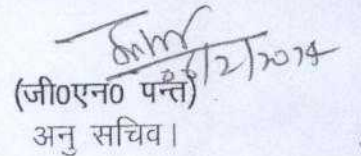 06/2/2024
(जी०एन० पन्त)
अनु सचिव।